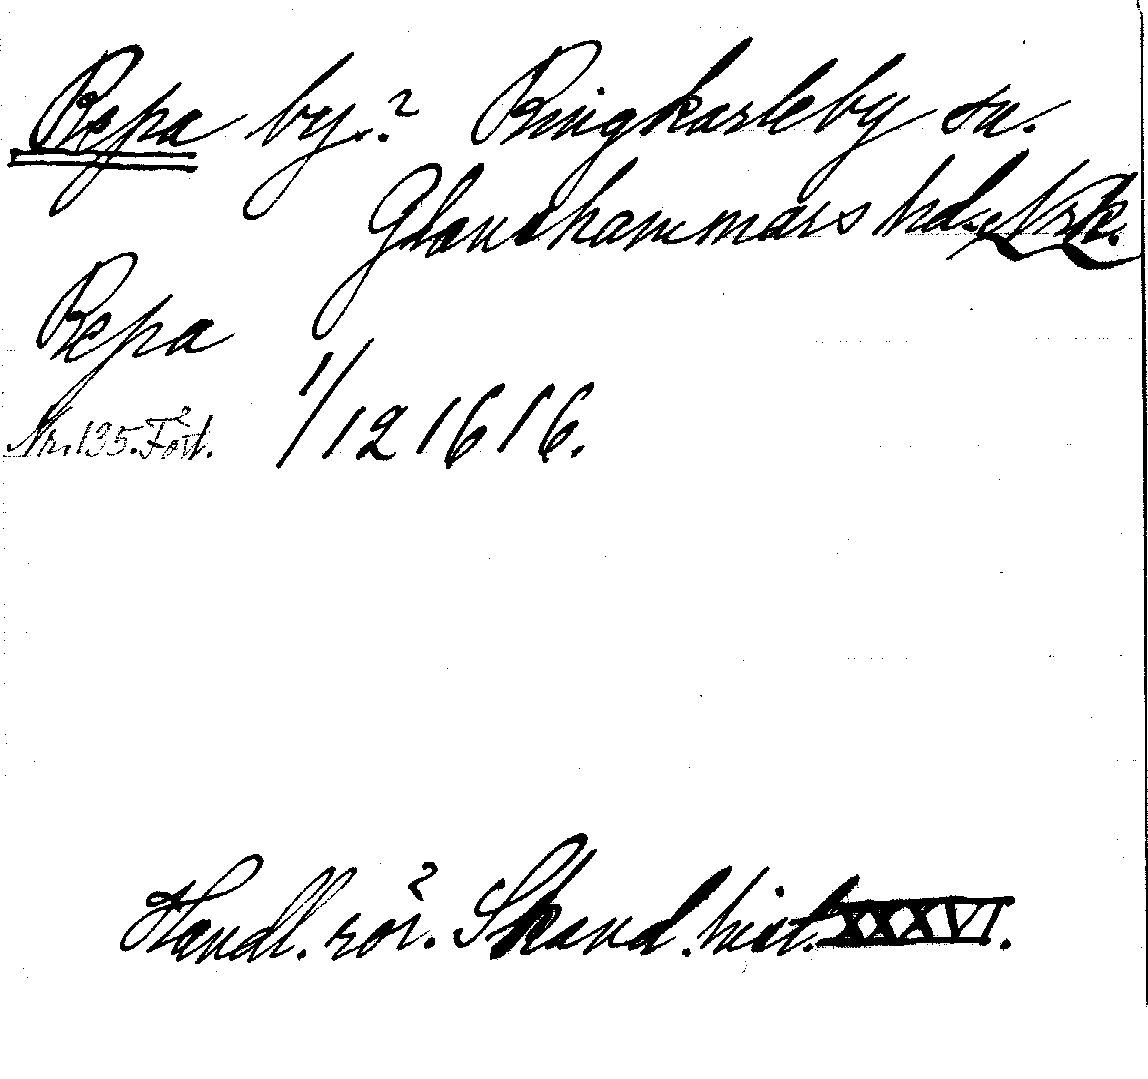 Repa by.? Ringkarleby sn.
Glanshammars hd. Nrk.
Repa
Nr. 135. Fört. 1/12 1616.
Handl. rör. Skand. hist. XXXVI.